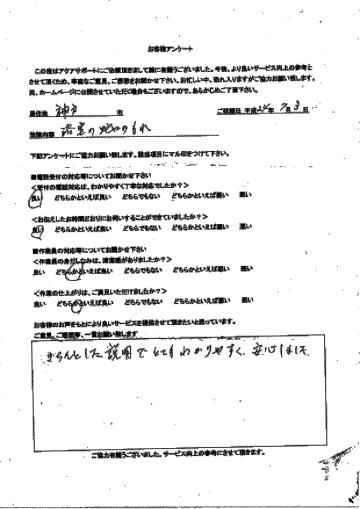 お客様アンケート
この度はアクアサポートにご依頼頂きまして誠に有難うございました。今後、より良いサービス向上の参考と
させて頂くため、率直なご意見、ご感想をお聞かせ下さい。お忙しい中、恐れ入りますがご協力お願い致します。
尚、ホームページに公開させていただく場合もございますので、あらかじめご了承下さい。
居住地 神戸 市 ご依頼日 平成 年 月 日
依頼内容 浴室の蛇口のもれ
下記アンケートにご協力お願い致します。該当項目にマル印をつけて下さい。
■電話受付の対応等についてお聞かせ下さい
<受付の電話対応は、わかりやすく丁寧な対応でしたか?>
良い どちらかといえば良い どちらでもない どちらかといえば悪い 悪い
<お伝えしたお時間どおりにお伺いすることができていましたか?>
良い どちらかといえば良い どちらでもない どちらかといえば悪い 悪い
■作業員の対応等についてお聞かせ下さい
<作業員の身だしなみは、清潔感がありましたか?>
良い どちらかといえば良い どちらでもない どちらかといえば悪い 悪い
<作業の仕上がりは、ご満足いただけましたか?>
良い どちらかといえば良い どちらでもない どちらかといえば悪い 悪い
お客様のお声をもとにより良いサービスを提供させて頂きたいと思っています。
ご意見、ご感想等、一言お願い致します
きちんとした説明でとてもわかりやすく、安心しました
ご協力有難うございました。サービス向上の参考にさせて頂きます。